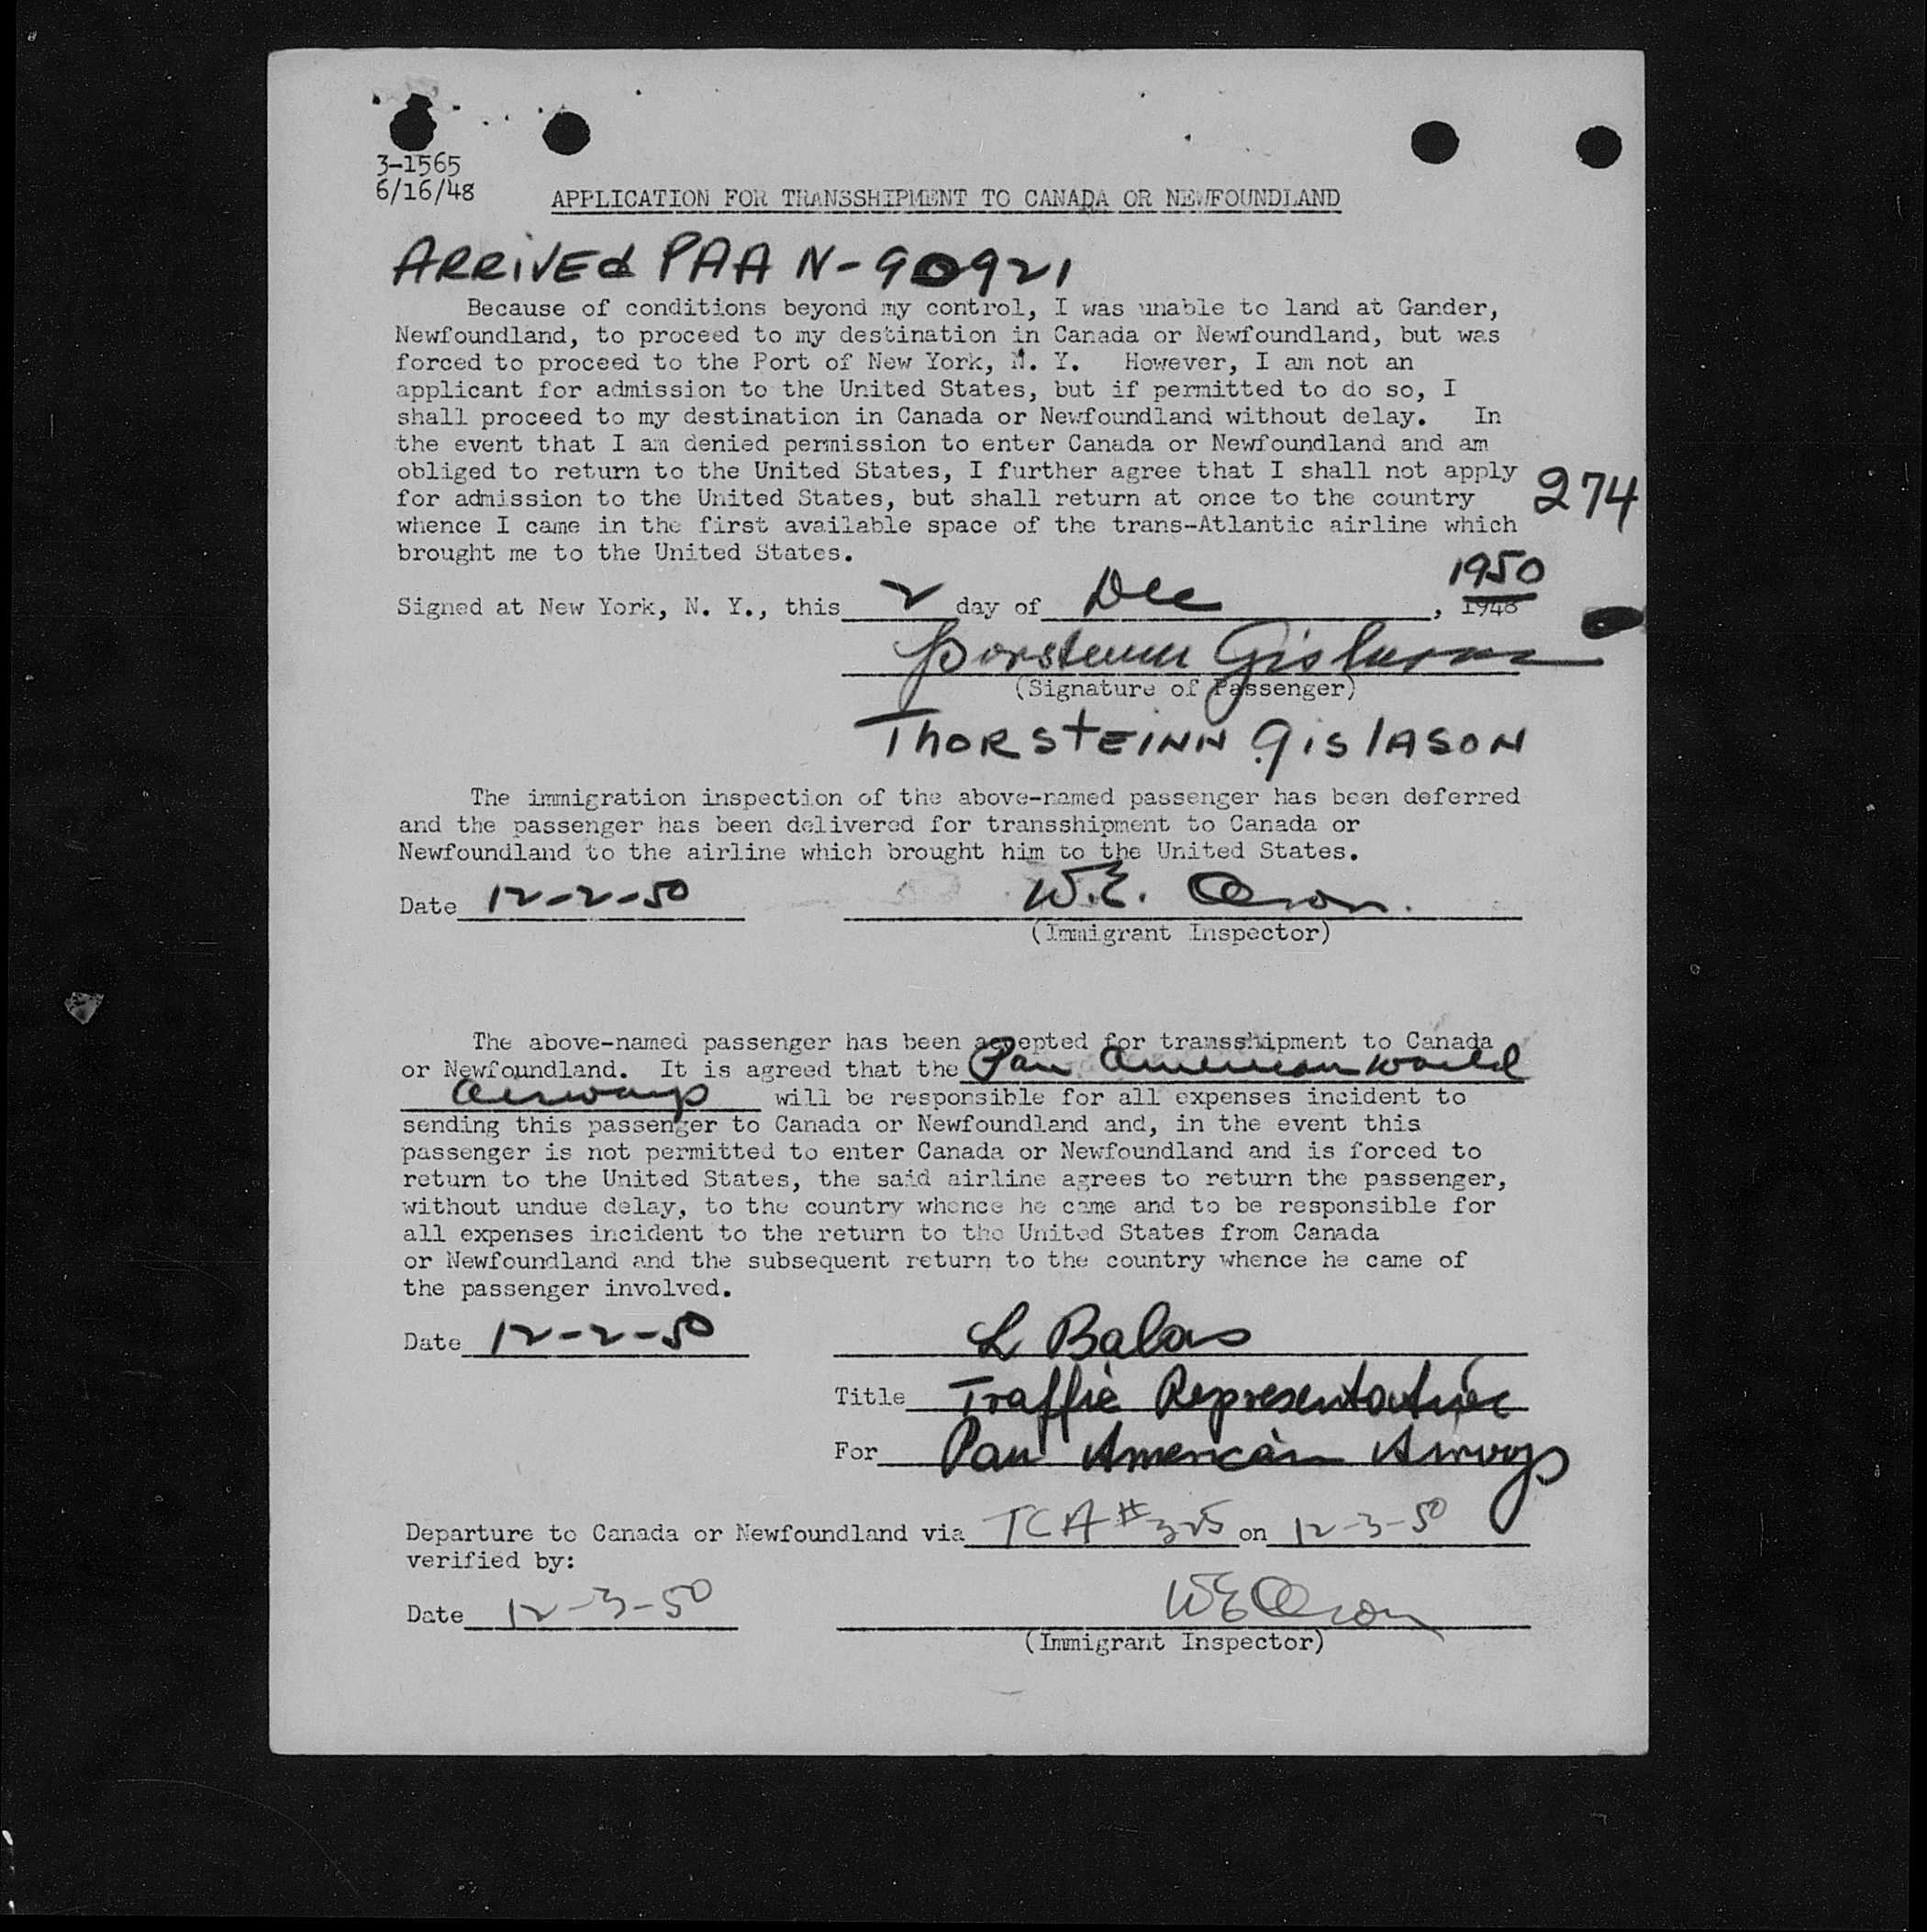 3-1565
6/16/48
APPLICATION FOR TRANSSHIPMENT TO CANADA OR NEWFOUNDLAND
ARRIVEd PAA N-90921
Because of conditions beyond my control, I was unable to land at Gander,
Newfoundland, to proceed to my destination in Canada or Newfoundland, but was
forced to proceed to the Port of New York, N. Y. However, I am not an
applicant for admission to the United States, but if permitted to do so, I
shall proceed to my destination in Canada or Newfoundland without delay. In
the event that I am denied permission to enter Canada or Newfoundland and am
obliged to return to the United States, I further agree that I shall not apply
for admission to the United States, but shall return at once to the country
274
whence I came in the first available space of the trans-Atlantic airline which
brought me to the United States.
1950
Signed at New York, N. Y., this 2 day of Dec, 1948
Þorsteinn Gislason
(Signature of Passenger)
ThORSTEINN GislASON
The immigration inspection of the above-named passenger has been deferred
and the passenger has been delivered for transshipment to Canada or
Newfoundland to the airline which brought him to the United States.
Date 12-2-50 W.E. Olson.
(Immigrant Inspector)
The above-named passenger has been accepted for transshipment to Canada
or Newfoundland. It is agreed that the Pan American World
Airways will be responsible for all expenses incident to
sending this passenger to Canada or Newfoundland and, in the event this
passenger is not permitted to enter Canada or Newfoundland and is forced to
return to the United States, the said airline agrees to return the passenger,
without undue delay, to the country whence he came and to be responsible for
all expenses incident to the return to the United States from Canada
or Newfoundland and the subsequent return to the country whence he came of
the passenger involved.
Date 12-2-50 L Balas
Title Traffic Representative
For Pan American Airways
Departure to Canada or Newfoundland via TCA #325 on 12-3-50
verified by:
Date 12-3-50 WE Olson
(Immigrant Inspector)